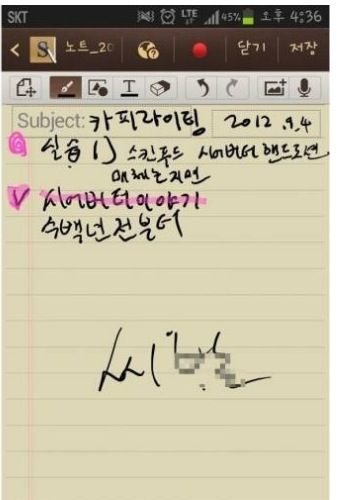 SKT LTE 45% 오후 4:36
노트_20 닫기 저장
T
Subject: 카피라이팅 2012.9.4
실습 1) 스킨푸드 시어버터 핸드로션
매체는지면
V 시어버터이야기
수백년전부터